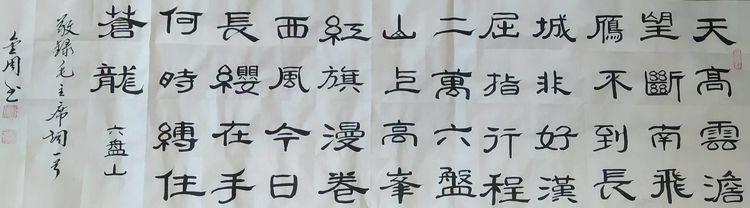 天髙雲澹
望斷南飛
鴈不到長
城非好漢
屈指行程
二萬六盤
山上高峯
紅旗漫卷
西風今日
長纓在手
何時縛住
蒼龍 六盘山
敬録毛主席词一首
书